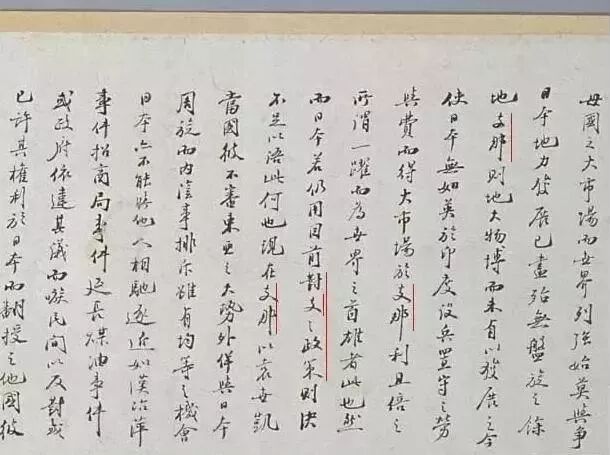 母國之大市場而世界列強始莫與爭
日本地力發展已盡殆無盤旋之餘
地支那則地大物博而未有以發展之今
使日本無如英於印度設兵置守之勞
與費而得大市場於支那利且倍之
所謂一躍而為世界之首雄者此也然
而日本若仍用目前對支之政策則決
不足以語此何也現在支那以袁世凱
當國彼不審東亞之大勢外佯與日本
周旋而內陰事排斥雖有均等之機會
日本亦不能與他人相馳逐近如漢冶萍
事件招商局事件延長煤油事件
或政府依違其議而嗾民間以反對或
已許其權利於日本而翻授之他國彼